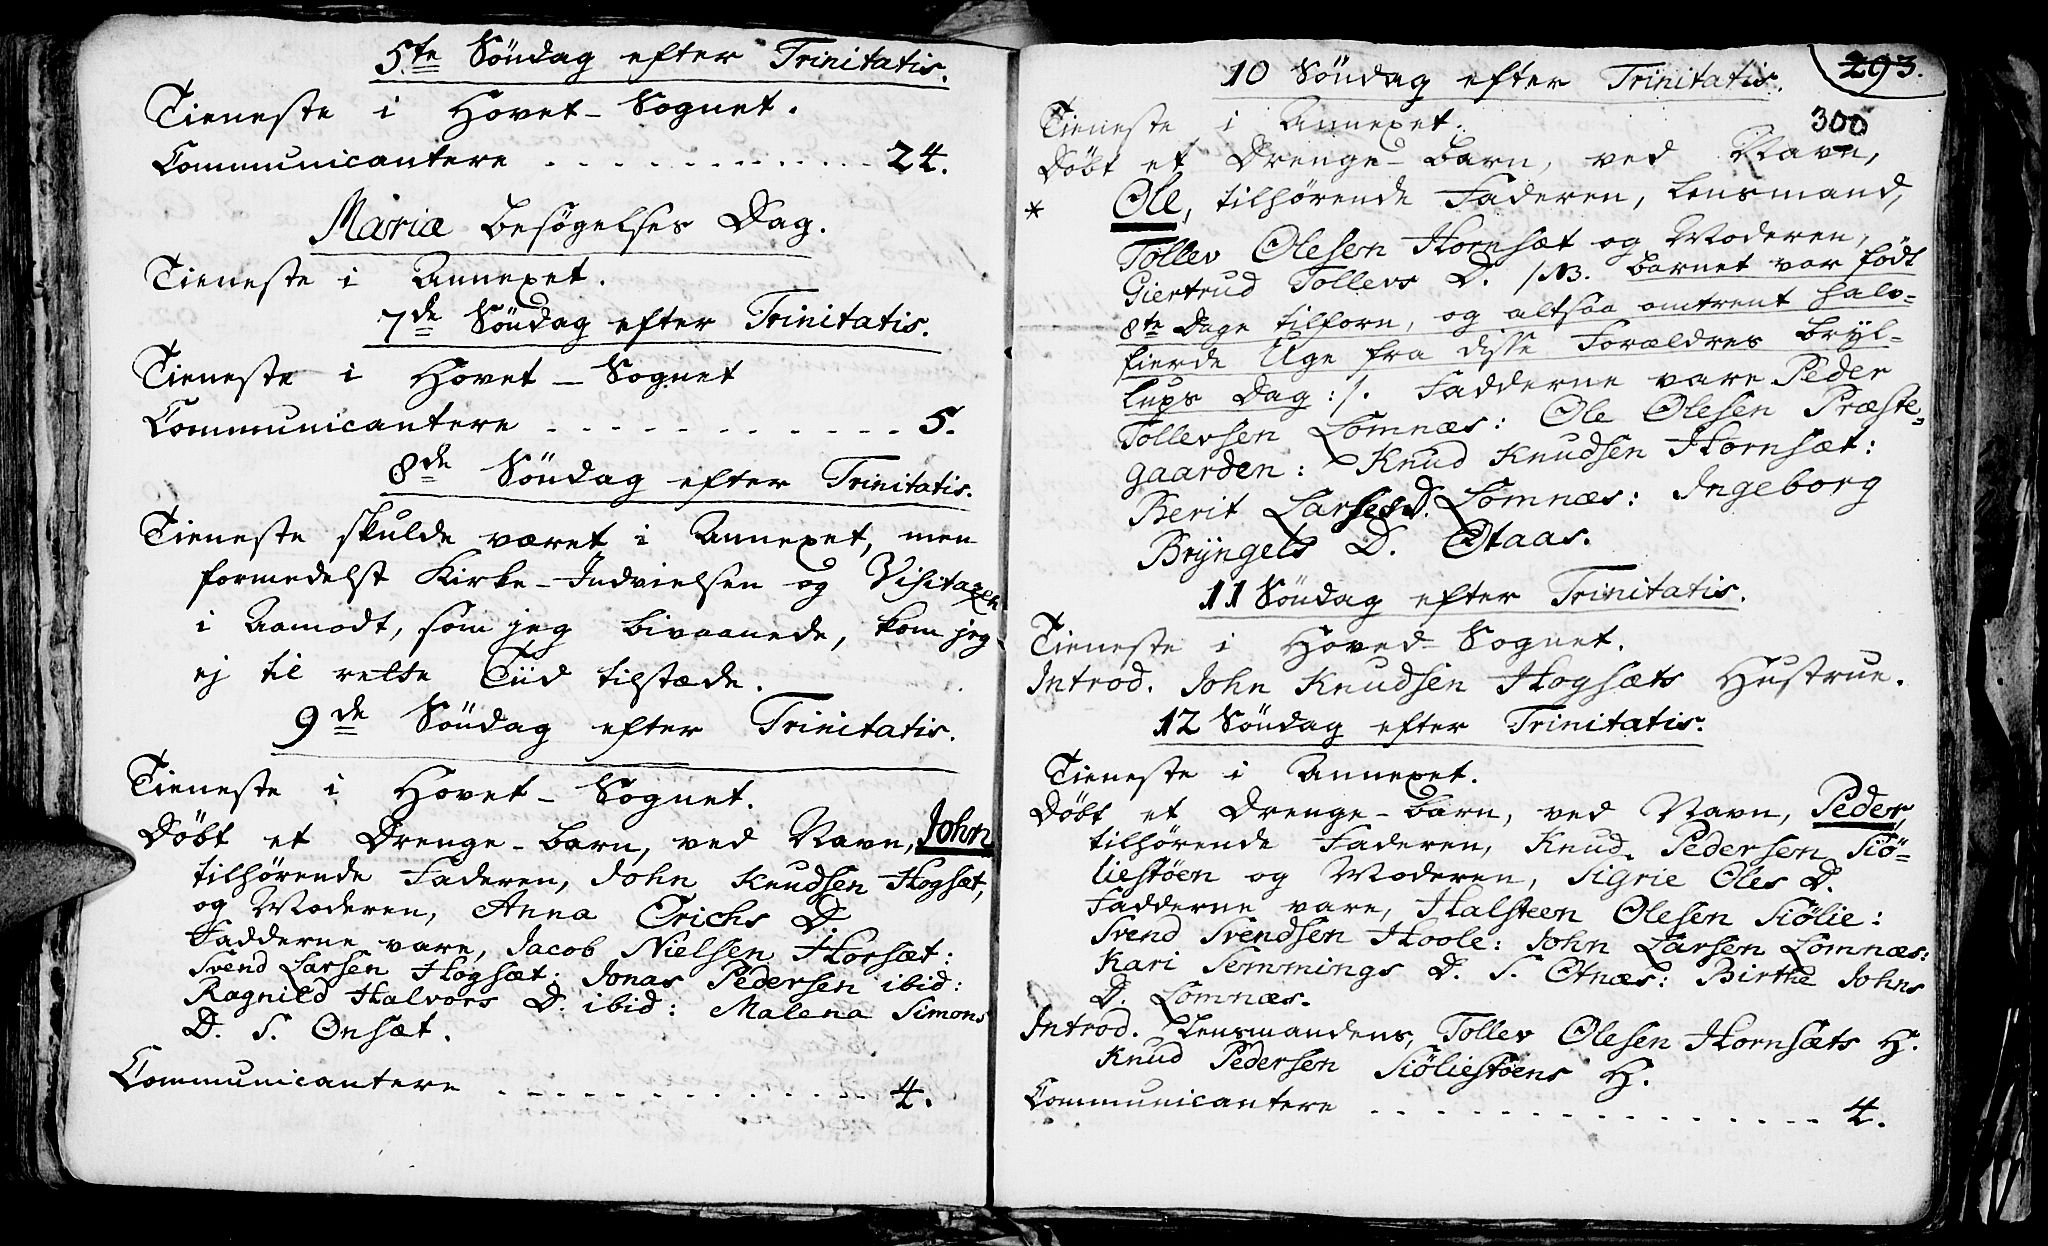 5te Söndag efter Trinitatis.
Tieneste i Hovet-Sognet.
Communicantere - - - - - - - - - - - 24.
Mariæ Besøgelses Dag.
Tieneste i Annexet.
7de Söndag efter Trinitatis.
Tieneste i Hovet-Sognet
Communicantere - - - - - - - - - - - 5.
8de Söndag efter Trinitatis.
Tieneste skulde været i Annexet, men
formedelst Kirke-Indvielsen og Visitazen
i Aamodt, som jeg bivaanede, kom jeg
ej til rette Tiid tilstæde.
9de Söndag efter Trinitatis.
Tieneste i Hovet-Sognet.
Döbt et Drenge-barn, ved Navn, John
tilhørende Faderen, John Knudsen Hogsæt,
og Moderen, Anna Erichs D.
Fadderne vare, Jacob Nielsen Horsæt:
Svend Larsen Hogsæt: Jonas Pedersen ibid:
Ragnild Halvors D. ibid: Malena Simons
D. S. Onsæt.
Communicantere - - - - - - - - - - - 4.
293.
300
10 Söndag efter Trinitatis.
Tieneste i Annexet.
Döbt et Drenge-barn, ved Navn,
* Ole, tilhørende Faderen, Lensmand,
Tollev Olesen Hornsæt og Moderen,
Giertrud Tollevs D. /: NB. barnet var født
8te Dage tilforn, og altsaa omtrent halv-
fierde Uge fra disse Forældres Bryl-
lups Dag :/. Fadderne vare Peder
Tollevsen Lomnæs: Ole Olesen Præste-
gaarden: Knud Knudsen Hornsæt:
Berit Larses D. Lomnæs: Ingeborg
Bryngels D. Otaas.
11 Söndag efter Trinitatis.
Tieneste i Hoved-Sognet.
Introd. John Knudsen Hogsæts Hustrue.
12 Söndag efter Trinitatis.
Tieneste i Annexet.
Döbt et Drenge-barn, ved Navn, Peder,
tilhørende Faderen, Knud Pedersen Siö-
liestöen og Moderen, Sigrie Oles D.
Fadderne vare, Halsteen Olesen Siölie:
Svend Svendsen Hoole: John Larsen Lomnæs:
Kari Semmings D. S. Otnæs: Birthe Johns
D. Lomnæs.
Introd. Lensmandens, Tollev Olesen Hornsæts H.
Knud Pedersen Siöliestöens H.
Communicantere - - - - - - - - - - - 4.